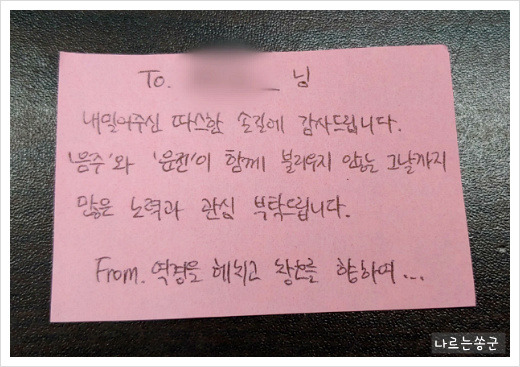 To. 님
내밀어주신 따스한 손길에 감사드립니다.
'음주'와 '운전'이 함께 불리우지 않는 그날까지
많은 노력과 관심 부탁드립니다.
From. 역경을 헤치고 창호를 향하여...
나르는쏭군